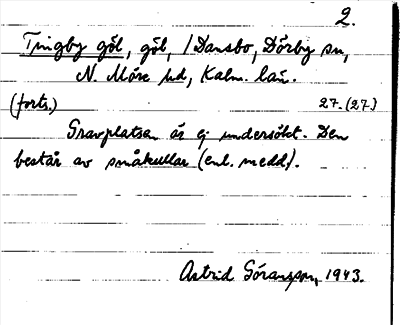 2.
Tingby göl, göl, /Dansbo, Dörby sn,
N. Möre hd, Kalm. län.
(forts.) 27. (27.)
Gravplatsen är ej undersökt. Den
består av småkullar (enl. medd.).
Astrid Göransson, 1943.